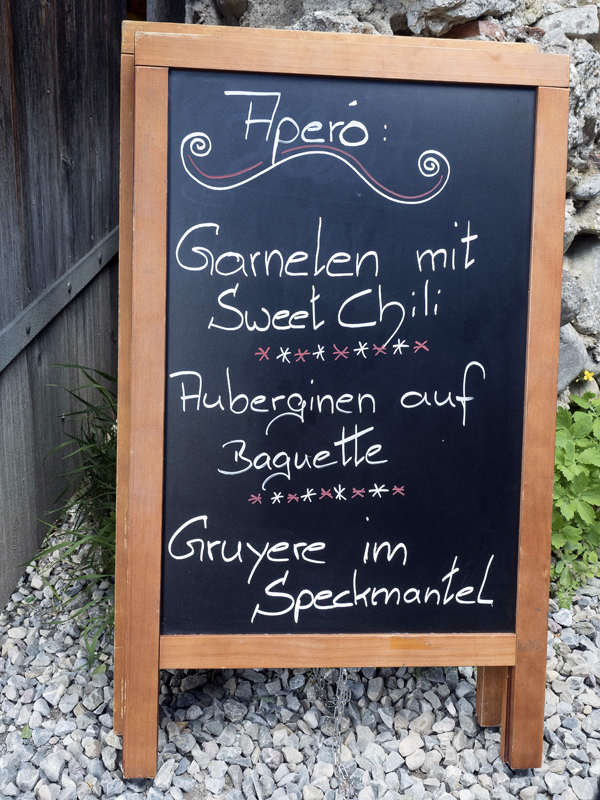 Aperó:
Garnelen mit
Sweet Chili
Auberginen auf
Baguette
Gruyere im
Speckmantel